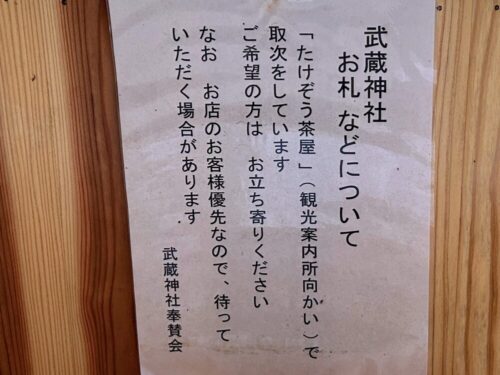 武蔵神社
お札 などについて
「たけぞう茶屋」(観光案内所向かい)で
取次をしています
ご希望の方は お立ち寄りください
なお お店のお客様優先なので、待って
いただく場合があります
武蔵神社奉賛会